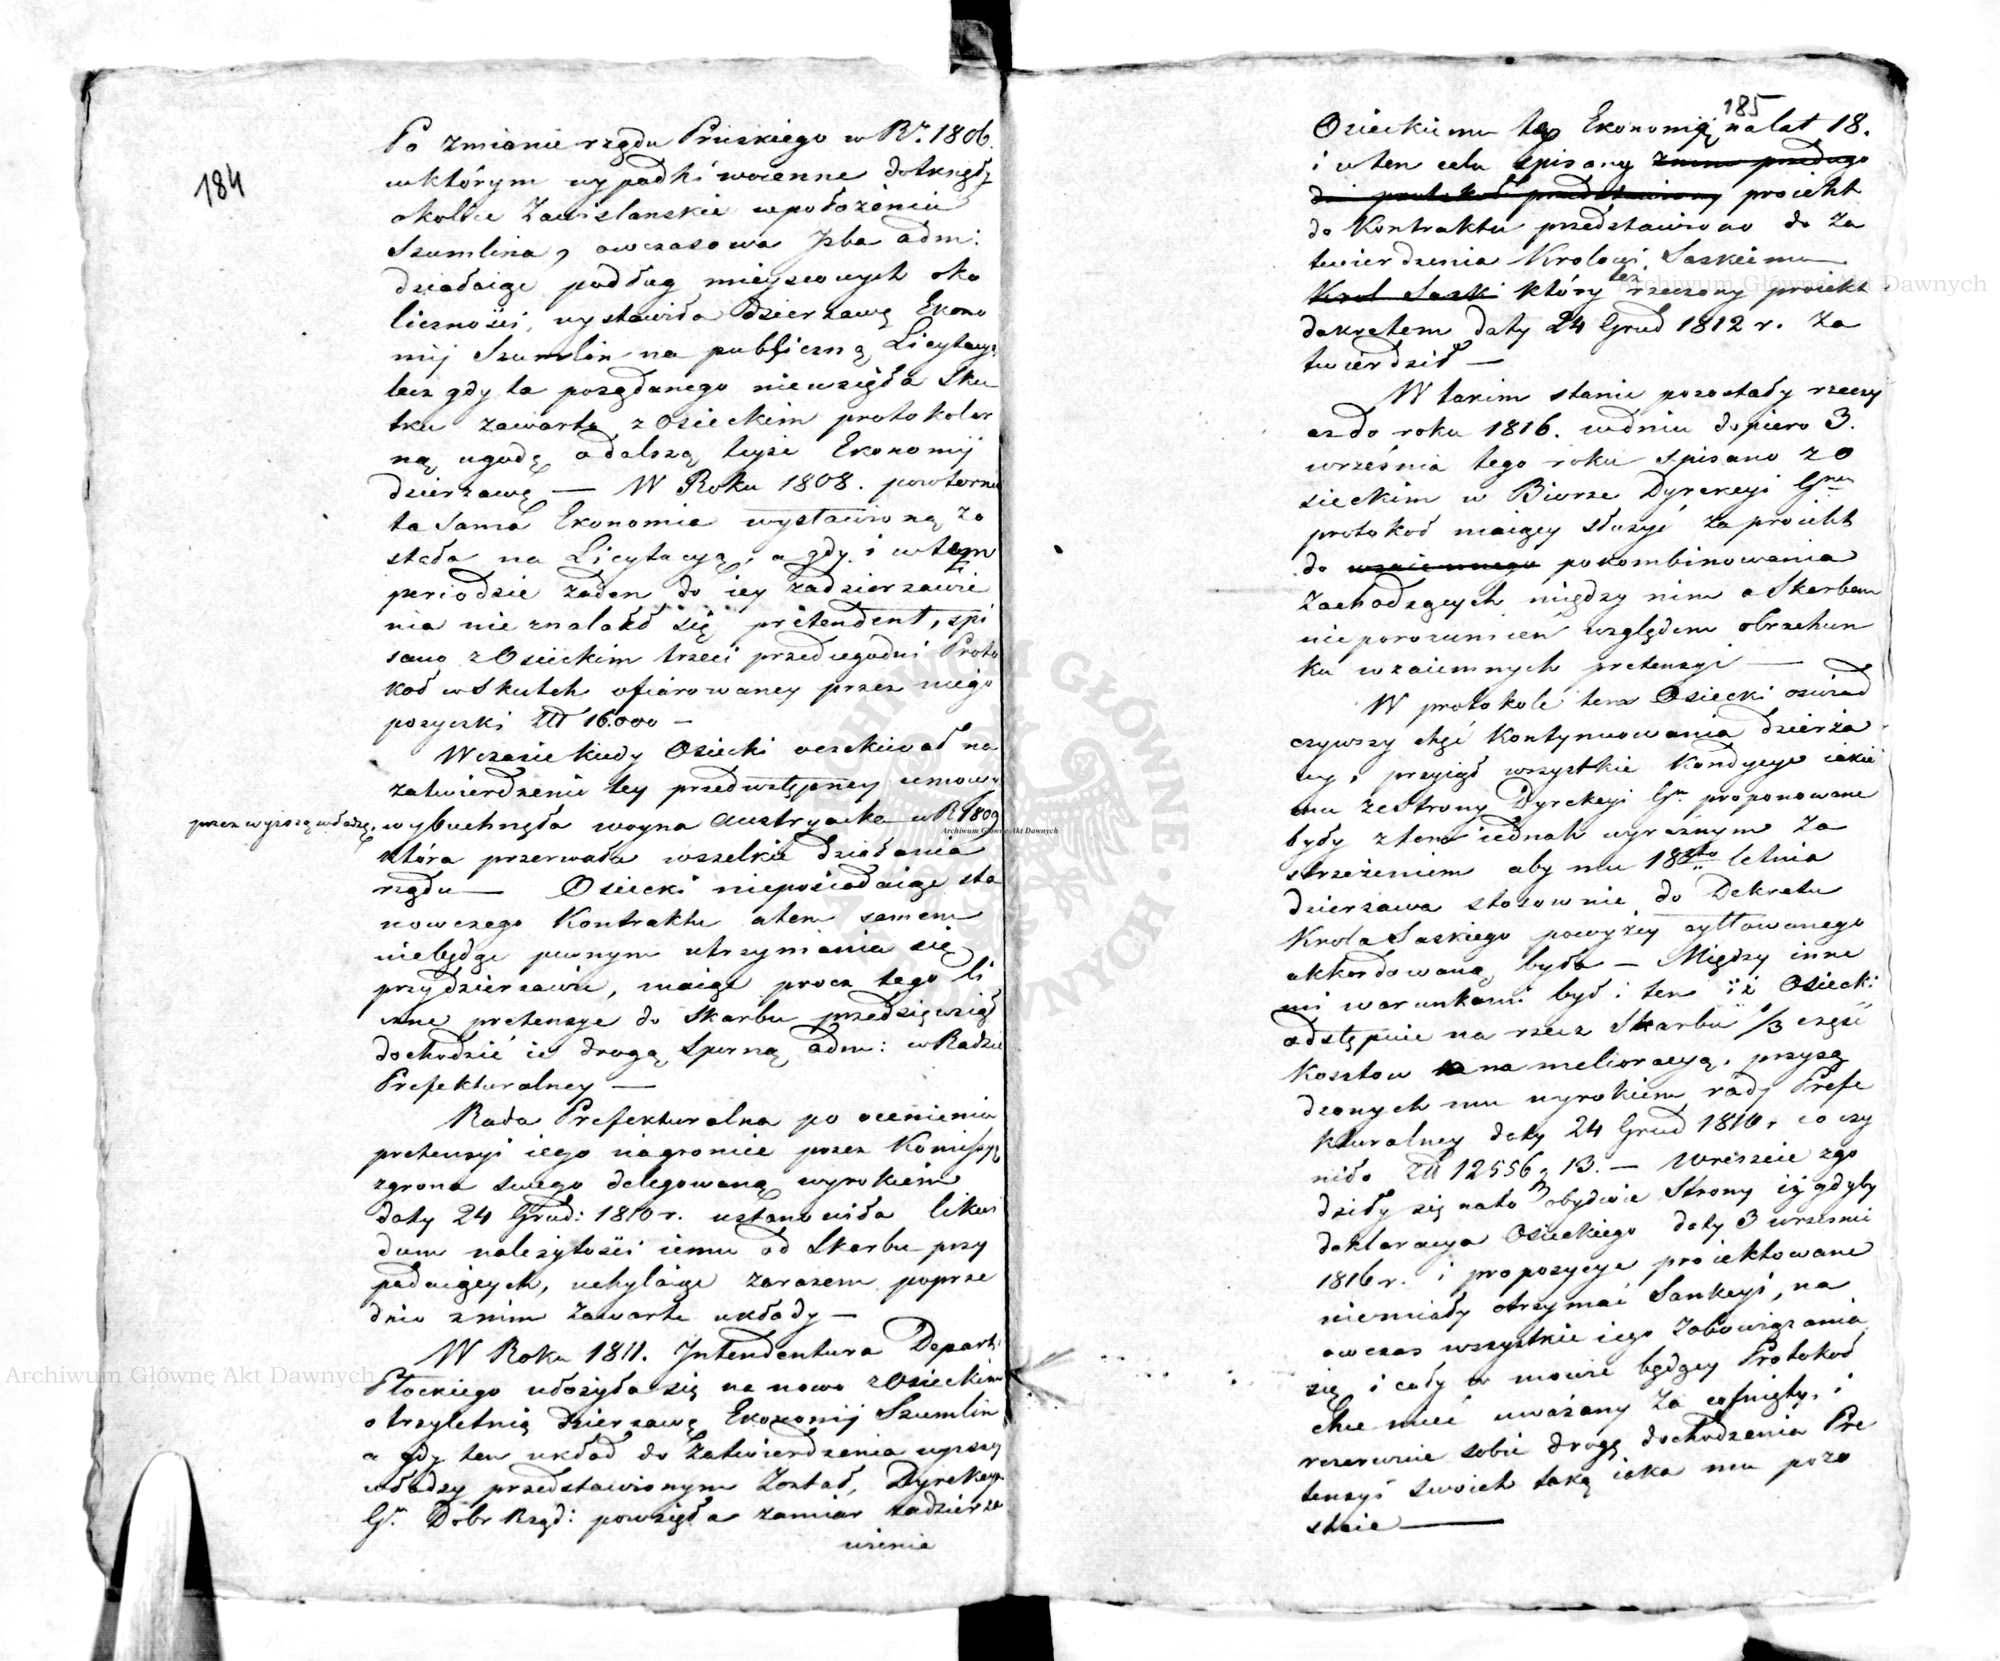 184
Po zmianie rządu Pruskiego w Rr. 1806.
wktórym wypadki woienne dotknęły
okolice Zawislanskie w położeniu
Szumlina, owczasowa Jzba adm:
działaiąc podług mieyscowych oko
liczności, wystawiła dzierzawę Ekono
mij Szumlin na publiczną Licytacyą
lecz gdy ta pożądanego niewzięła Sku
tku zawarto z Osieckim protokolar
ną ugodę o dalszą teyże Ekonomij
dzierzawę — W Roku 1808. powtornie
ta sama Ekonomia wystawioną zo
stała na Licytacyą, a gdy i w tem
periodzie żaden do iey zadzierzawie
nia nie znalazł się pretendent, spi
sano z Osieckim trzeci przedugodni Proto
koł w Skutek ofiarowaney przez niego
pożyczki Złł 16.000 —
Wczasie kiedy Osiecki oczekiwał na
zatwierdzenie tey przedwstępney umowy
przez wyższą władzę,
wybuchnęła woyna Austryacka w R 1809
która przerwała wszelkie działania
rządu — Osiecki nieposiadaiąc sta
nowczego Kontraktu a tem samem
niebędąc pewnym utrzymania się
przydzierzawie, maiąc procz tego li
czne pretensye do Skarbu przedsięwziął
dochodzić ie drogą Sporną adm: w Radzie
Prefekturalney —
Rada Prefekturalna po ocenieniu
pretensyi iego na gruncie przez Kommissyę
z grona swego delegowaną wyrokiem
daty 24 Grud: 1810 r. ustanowiła likwi
dum należytości iemu od Skarbu przy
padaiących, uchylaiąc zarazem poprze
dnio z nim zawarte układy —
W Roku 1811. Jntendentura Depart:
Płockiego ułożyła się na nowo z Osieckim
o trzyletnią dzierzawę Ekonomij Szumlin
a gdy ten układ do zatwierdzenia wyższej
władzy przedstawionym został, Dyrekcya
Gr. Dobr Rząd: powzięła zamiar zadzierza
wienia
185
Osieckiemu tę Ekonomią na lat 18.
i w ten celu spisany proiekt
do Kontraktu przedstawiono do Za
twierdzenia Krolowi Saskiemu
Krol Saski który też rzeczony proiekt
dekretem daty 24 Grud 1812 r. Za
twierdził —
W takim stanie pozostały rzeczy
aż do roku 1816. w dniu dopiero 3.
września tego roku spisano z O
sieckim w Biorze Dyrekcyi Gney
protokoł maiący służyć za proiekt
do wzaiemnego pokombinowania
zachodzących między nim a Skarbem
nieporozumień względem obrachun
ku wzaiemnych pretensyi —
W protokole tem Osiecki oswiad
czywszy chęć kontynuowania dzierża
wy, przyiął wszystkie Kondycye iakie
mu ze strony Dyrekcyi Gn proponowane
były z tem iednak wyraźnym za
strzeżeniem aby mu 18sto letnia
dzierzawa stosownie do Dekretu
Krola Saskiego powyżey cyttowanego
akkordowaną była — Między inne
mi warunkami był i ten iż Osiecki
odstępuie na rzecz Skarbu 1/3 część
Kosztow na melioracyą, przysą
dzonych mu wyrokiem rady Prefe
kturalney daty 24 Grud 1810 r. co czy
niło Złł 12556, 13. — Wreszcie zgo
dziły się na to obydwie Strony iż gdyby
deklaracya Osieckiego daty 3 wrześnie
1816 r. i propozycye proiektowane
niemiały otrzymać Sankcyi, na
owczas wszystkie iego zobowiązania
się i cały w mowie będący Protokoł
chce mieć uważany za cofnięty, i
rezerwuie sobie drogę dochodzenia Pre
tensyi swoich taką iaka mu pozo
staie —
Archiwum Główne Akt Dawnych
Archiwum Główne Akt Dawnych
Archiwum Główne Akt Dawnych